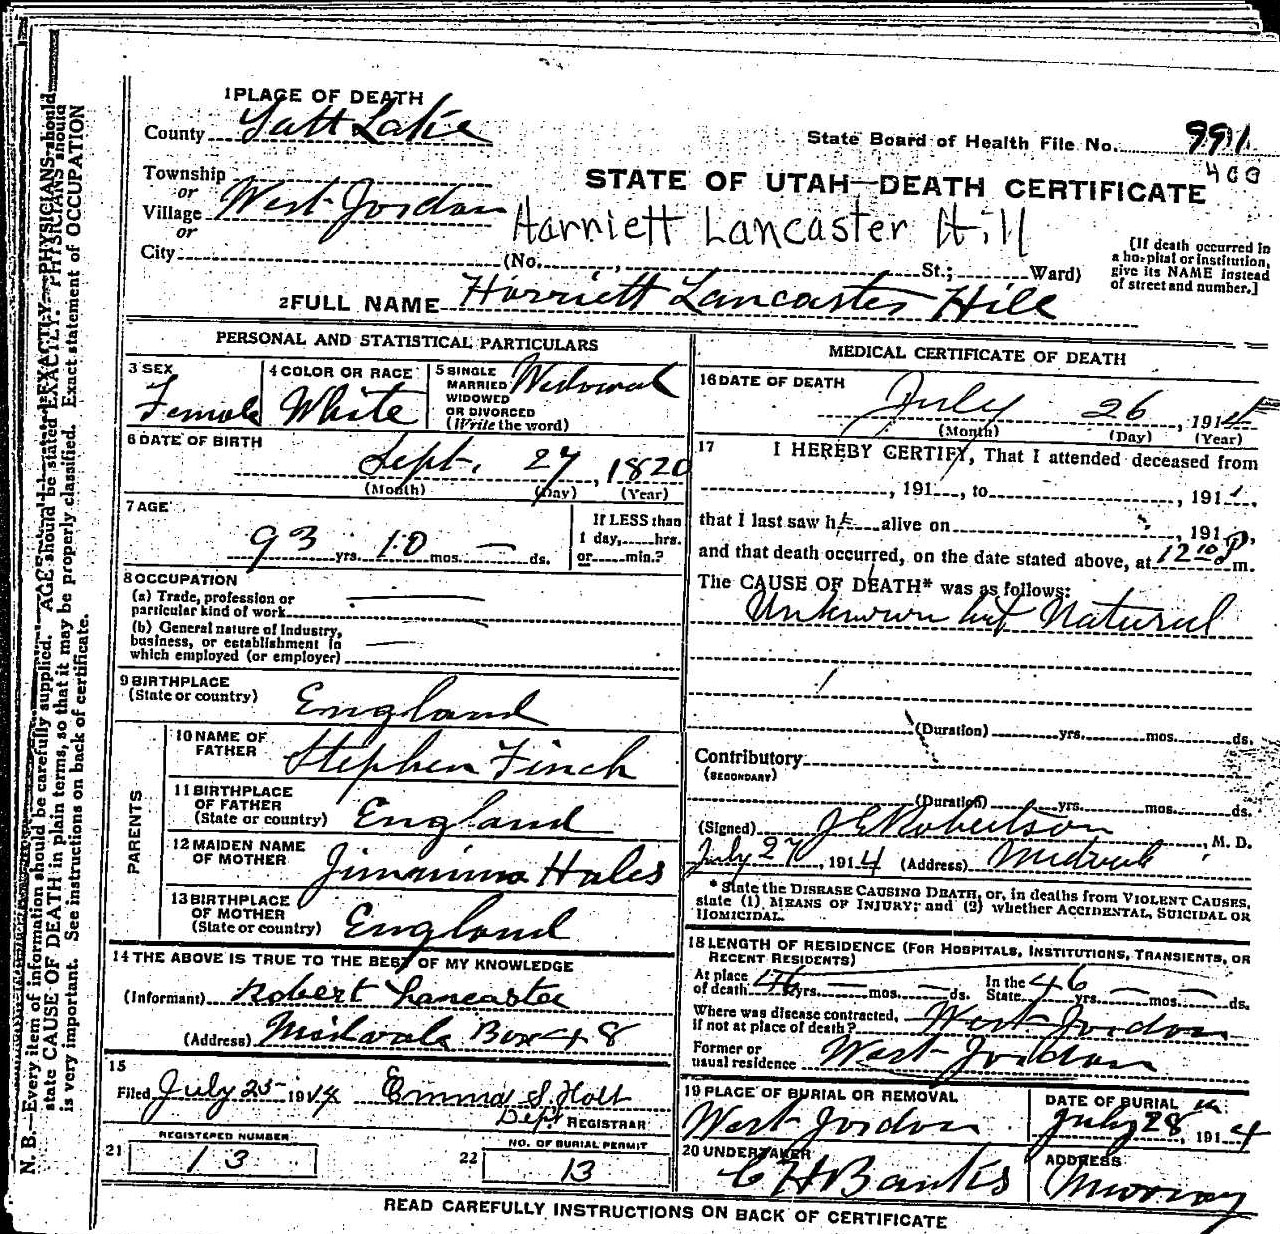 1 PLACE OF DEATH
County Salt Lake
State Board of Health File No. 991
400
Township
or
Village West Jordan
or
City (No. , St.; Ward)
STATE OF UTAH—DEATH CERTIFICATE
Harriett Lancaster Hill
[If death occurred in
a hospital or institution,
give its NAME instead
of street and number.]
2 FULL NAME Harriett Lancaster Hill
PERSONAL AND STATISTICAL PARTICULARS
3 SEX
Female
4 COLOR OR RACE
White
5 SINGLE
MARRIED
WIDOWED
OR DIVORCED
(Write the word)
Widowed
6 DATE OF BIRTH
Sept. 27, 1820
(Month) (Day) (Year)
7 AGE
93 yrs. 10 mos. — ds.
If LESS than
1 day, hrs.
or min.?
8 OCCUPATION
(a) Trade, profession or
particular kind of work
(b) General nature of Industry,
business, or establishment in
which employed (or employer)
9 BIRTHPLACE
(State or country) England
PARENTS
10 NAME OF
FATHER Stephen Finch
11 BIRTHPLACE
OF FATHER
(State or country) England
12 MAIDEN NAME
OF MOTHER Jimmima Hales
13 BIRTHPLACE
OF MOTHER
(State or country) England
14 THE ABOVE IS TRUE TO THE BEST OF MY KNOWLEDGE
(Informant) Robert Lancaster
(Address) Midvale Box 48
15
Filed July 25 1914 Emma S. Holt
Dept REGISTRAR
21 REGISTERED NUMBER
13
22 NO. OF BURIAL PERMIT
13
MEDICAL CERTIFICATE OF DEATH
16 DATE OF DEATH
July 26, 1914
(Month) (Day) (Year)
17 I HEREBY CERTIFY, That I attended deceased from
, 191 , to , 191 .
that I last saw h alive on , 191 ,
and that death occurred, on the date stated above, at 12 10 P m.
The CAUSE OF DEATH* was as follows:
Unknown but Natural
(Duration) yrs. mos. ds.
Contributory
(SECONDARY)
(Duration) yrs. mos. ds.
(Signed) J E Robertson, M. D.
July 27, 1914 (Address) Midvale
* State the DISEASE CAUSING DEATH, or, in deaths from VIOLENT CAUSES,
state (1) MEANS OF INJURY; and (2) whether ACCIDENTAL, SUICIDAL OR
HOMICIDAL.
18 LENGTH OF RESIDENCE (FOR HOSPITALS, INSTITUTIONS, TRANSIENTS, OR
RECENT RESIDENTS)
At place
of death 46 yrs. — mos. — ds.
In the
State 46 yrs. — mos. — ds.
Where was disease contracted,
if not at place of death? West Jordan
Former or
usual residence West Jordan
19 PLACE OF BURIAL OR REMOVAL
West Jordan
DATE OF BURIAL
July 28 th, 1914
20 UNDERTAKER
C H Banks
ADDRESS
Murray
READ CAREFULLY INSTRUCTIONS ON BACK OF CERTIFICATE
N. B.—Every item of information should be carefully supplied. AGE should be stated EXACTLY. PHYSICIANS should
state CAUSE OF DEATH in plain terms, so that it may be properly classified. Exact statement of OCCUPATION
is very important. See instructions on back of certificate.